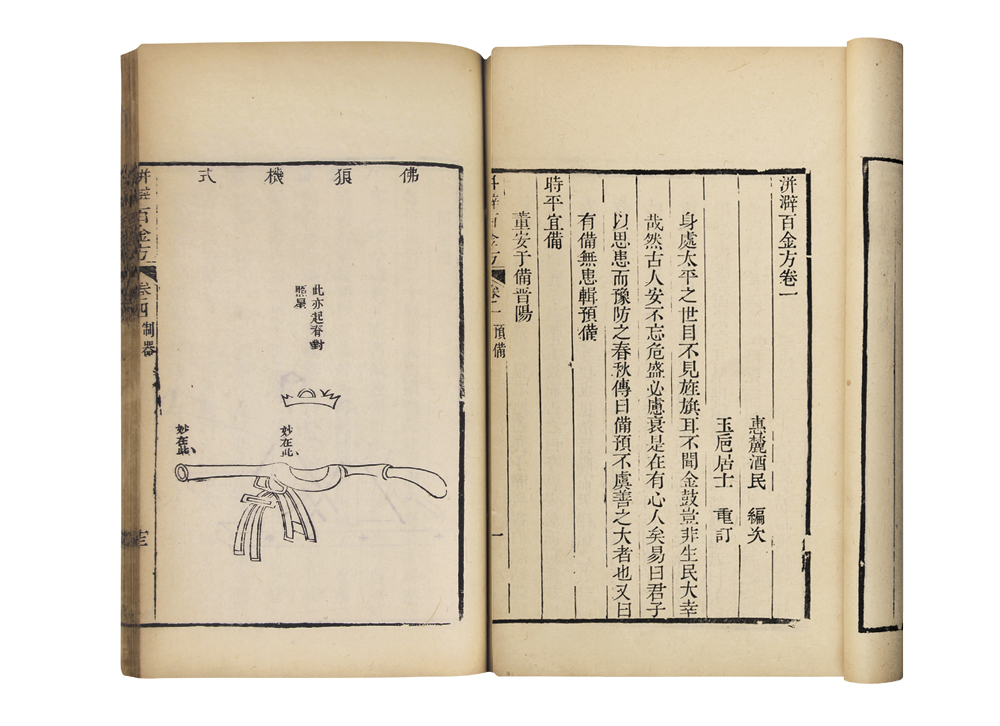 洴澼百金方卷一
惠麓酒民 編次
玉卮居士 重訂
身處太平之世目不見旌旗耳不聞金鼓豈非生民大幸
哉然古人安不忘危盛必慮衰是在有心人矣易曰君子
以思患而豫防之春秋傳曰備預不虞善之大者也又曰
有備無患輯預備
時平宜備
董安于備晉陽
百金方 卷一 預備
一
佛狼機式
此亦起脊對
照星
妙在此
妙在此
洴澼百金方 卷四 制器